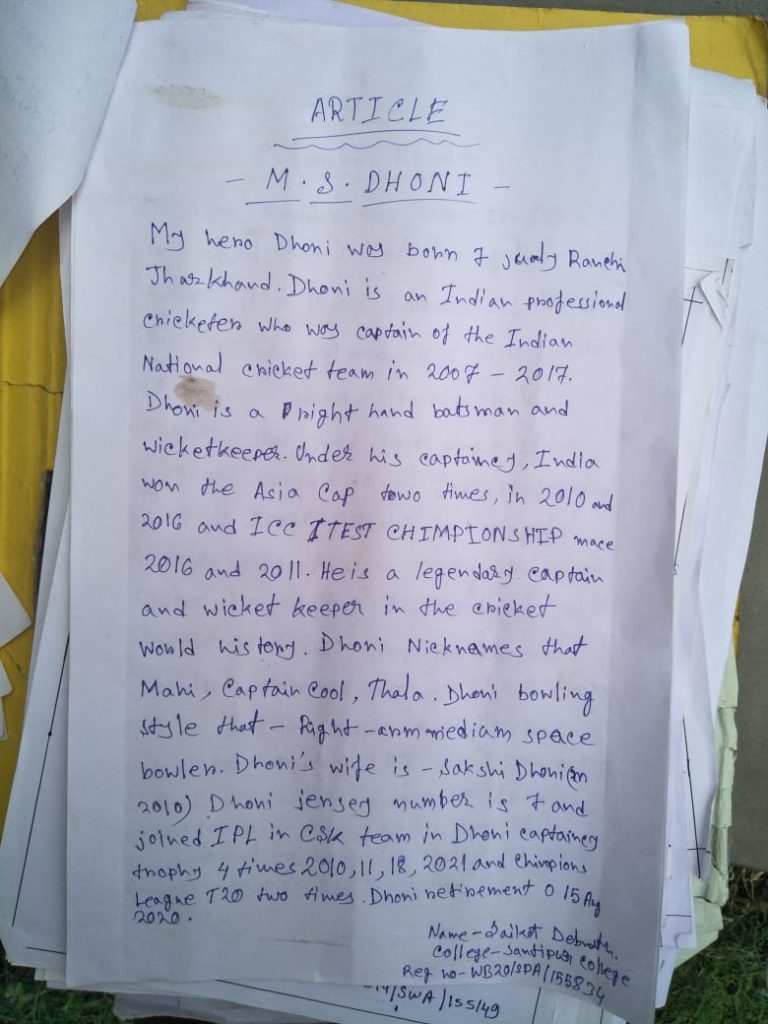 ARTICLE
- M.S. DHONI -
My hero Dhoni was born 7 jualy Ranchi
Jharkhand. Dhoni is an Indian professional
cricketer who was captain of the Indian
National cricket team in 2007 - 2017.
Dhoni is a right hand batsman and
wicketkeeper. Under his captaincy, India
won the Asia Cap towo times, in 2010 and
2016 and ICC TEST CHIMPIONSHIP mace
2016 and 2011. He is a legendary captain
and wicket keeper in the cricket
World history. Dhoni Nicknames that
Mahi, Captain Cool, Thala. Dhoni bowling
style that - Right-arm mediam space
bowler. Dhoni's wife is - Sakshi Dhoni (in
2010) Dhoni jersey number is 7 and
joined IPL in CSK team in Dhoni captaincy
trophy 4 times 2010, 11, 18, 2021 and Chimpions
League T20 two times. Dhoni retirement 0 15 Aug
2020.
Name - Saikat Debnath.
College - Santipur College
Reg no - WB20/SDA/155834
/SWA/155149